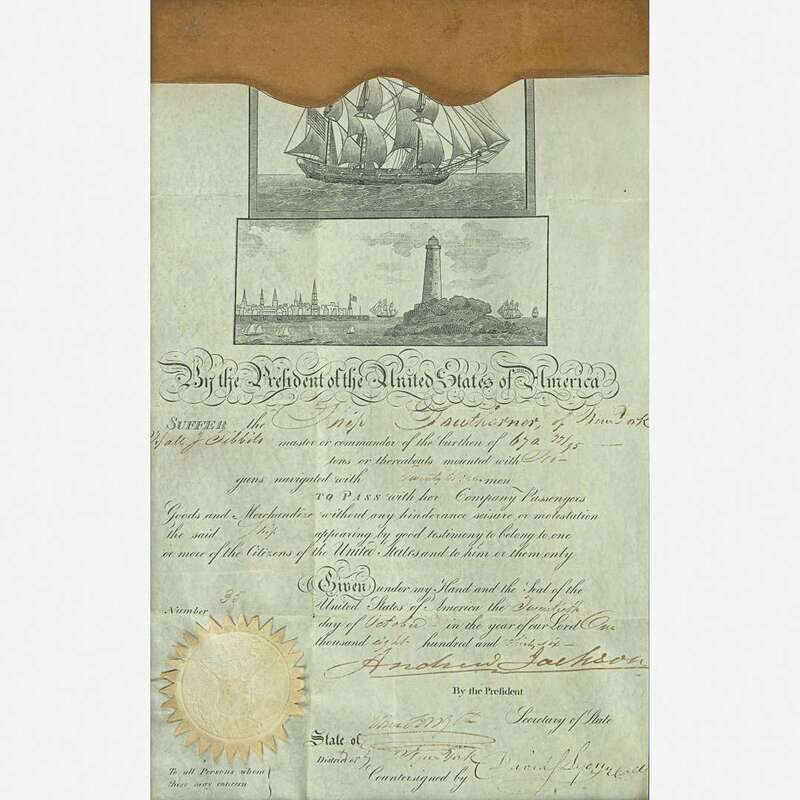 By the President of the United States of America
SUFFER the Ship Hawthorner, of New York
master or commander of the burthen of 670 77/95
tons or thereabouts mounted with No
guns navigated with men
TO PASS with her Company Passengers
Goods and Merchandize without any hinderance seisure or molestation
the said Ship appearing by good testimony to belong to one
or more of the Citizens of the United States and to him or them only
Given under my Hand and the Seal of the
United States of America the Twentieth
day of October in the year of our Lord One
thousand eight hundred and thirty six
Number 36
Andrew Jackson
By the President
Secretary of State
State of
District of New York
Countersigned by David S Lyon
To all Persons whom
these may concern